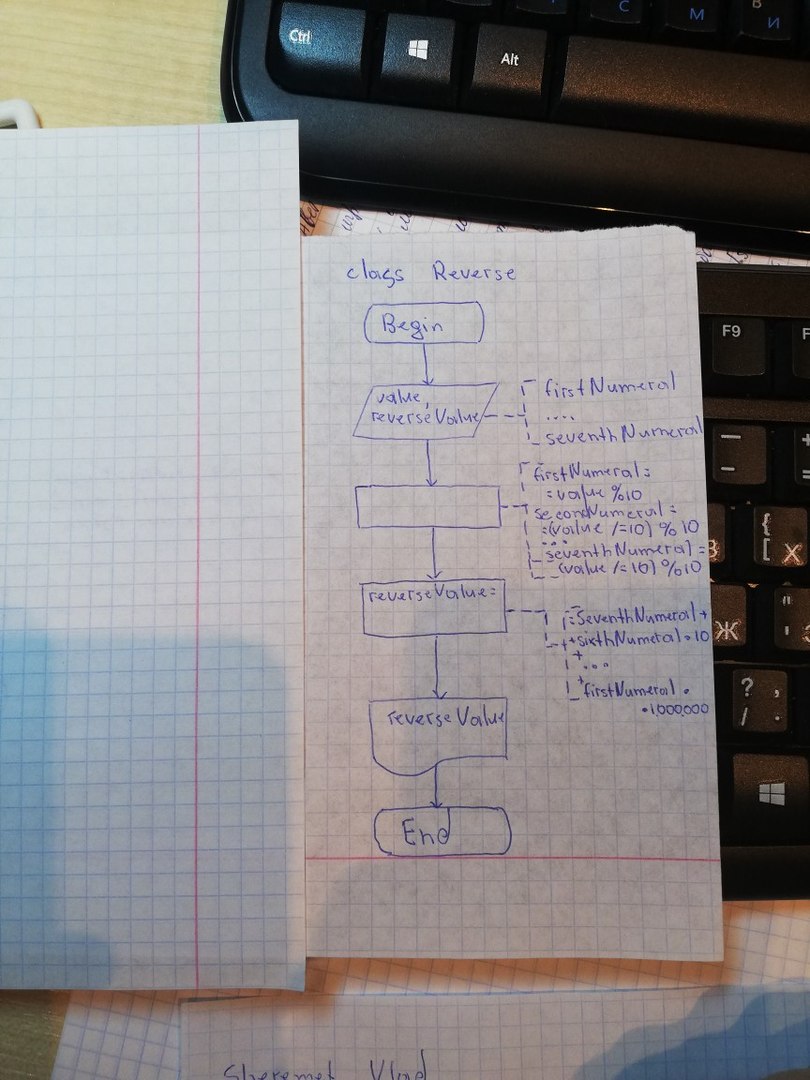 Ctrl
Alt
С
М
И
F9
class Reverse
Begin
value,
reverseValue
firstNumeral
....
seventhNumeral
firstNumeral =
= value %10
secondNumeral =
=(value /=10) % 10
...
seventhNumeral =
(value /=10) %10
reverseValue=
=SeventhNumeral +
+sixthNumeral • 10
+ ...
+ firstNumeral •
•1000000
reverseValue
End
{
[ Х
Ж
" 
? ,
/ .
Sheremet Vlad